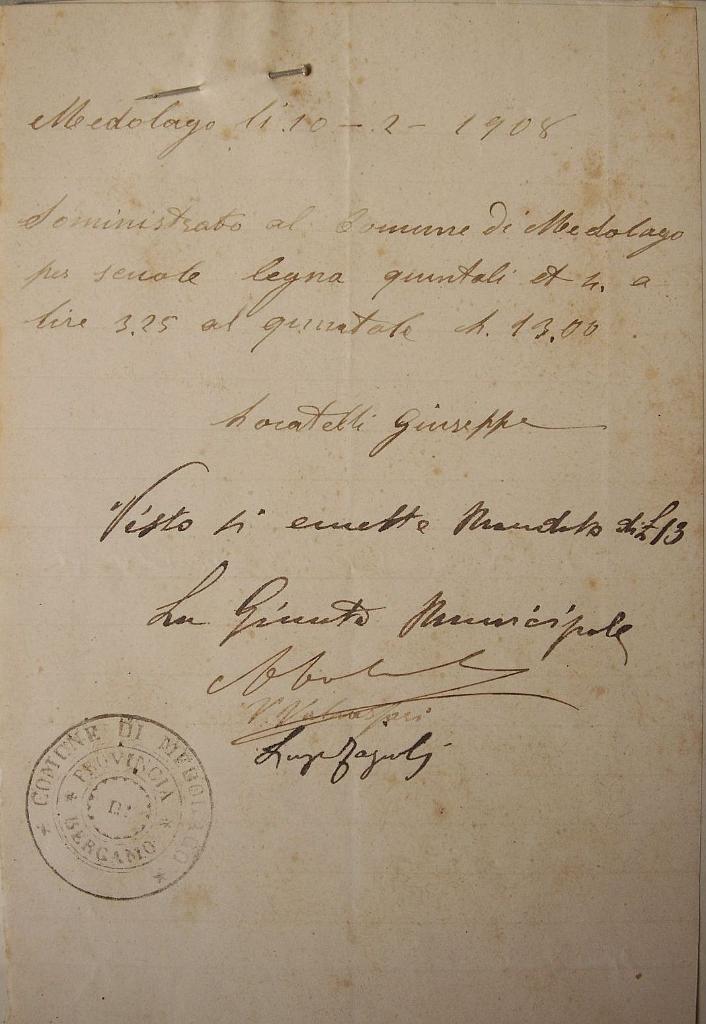 Medolago li 10 - 2 - 1908
Somministrato al Comune di Medolago
per scuole legna quintali et n. a
lire 3.25 al quintale L. 13.00
Locatelli Giuseppe
Visto si emette Mandato di £ 13
La Giunta Municipale
COMUNE DI MEDOLAGO
PROVINCIA
DI
BERGAMO